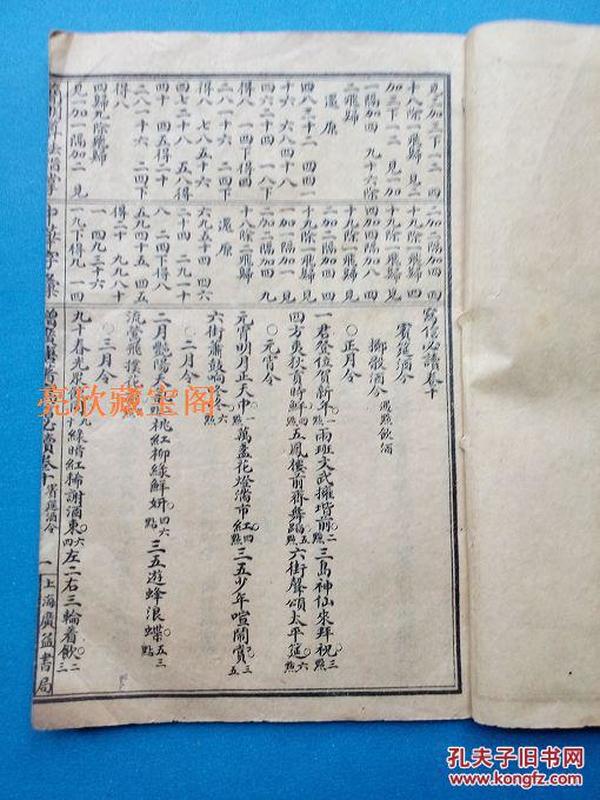 見三加三下一二 四
十八除一飛歸 見二
加三下一二 見一加
一隔加四 九十六除
二飛歸
還原
四八三十二 四四一
十六 六八四十八
四六二十四 一八下
得八 一二下得二
二八一十六 二四下
得八 七八五十六
四七二十八 五八得
四十 四五得二十
二八一十六 二四下
得八
四歸九除飛歸
見一加一隔加二 見
二加二隔加四 四
十九除一飛歸 見一
十九除一飛歸 見一
四加四隔加四
十九除一飛歸 見
一加一隔加一 見
二加二隔加四 四九
十八除二飛歸
還原
六九五十四 四六
二十四 二九一十
八 二四下得八
五九四十五 四五
得二十 九九八十
一 四九三十六
一九下得九 一四
寫信必讀卷十
賓筵酒令
擲骰酒令 遇點飲酒
○正月令
一君登位賀新年一點 兩班文武擁堦前二點 三島神仙來拜祝三點
四方夷狄貢時鮮四點 五鳳樓前齊舞蹈五點 六街聲頌太平筵六點
○元宵令
元宵明月正天中一點 萬盞花燈滿市紅四點 三五少年喧鬧賞三五
六街簫鼓响 六點
○二月令
二月艷陽 桃紅柳綠鮮妍四六點 三五遊蜂浪蝶五三點
流鶯飛撲
○三月令
九十春光 綠暗紅稀謝酒東四六 左二右三輪着飲二三
必讀卷十 賓筵酒令 一 上海廣益書局
亮欣藏宝阁
孔夫子旧书网
www.kongfz.com